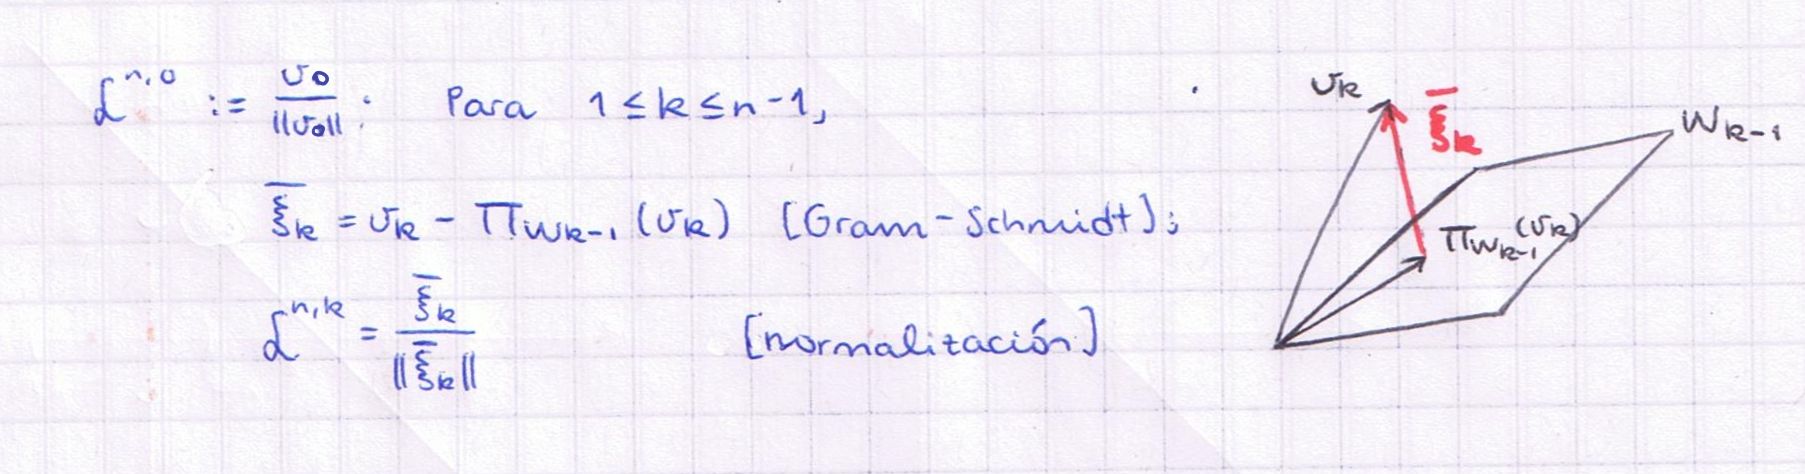 ℒ^{n,0} := v₀/‖v₀‖; Para 1 ≤ k ≤ n-1,
ξ̅ₖ = vₖ - Π_{W_{k-1}}(vₖ) [Gram-Schmidt];
ℒ^{n,k} = ξ̅ₖ/‖ξ̅ₖ‖ [normalización]
vₖ
ξ̅ₖ
W_{k-1}
Π_{W_{k-1}}(vₖ)